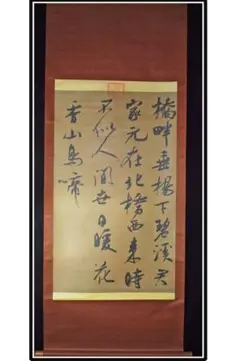 橋畔垂楊下碧溪君
家元在北橋西来時
不似人间世日暖花
香山鳥啼